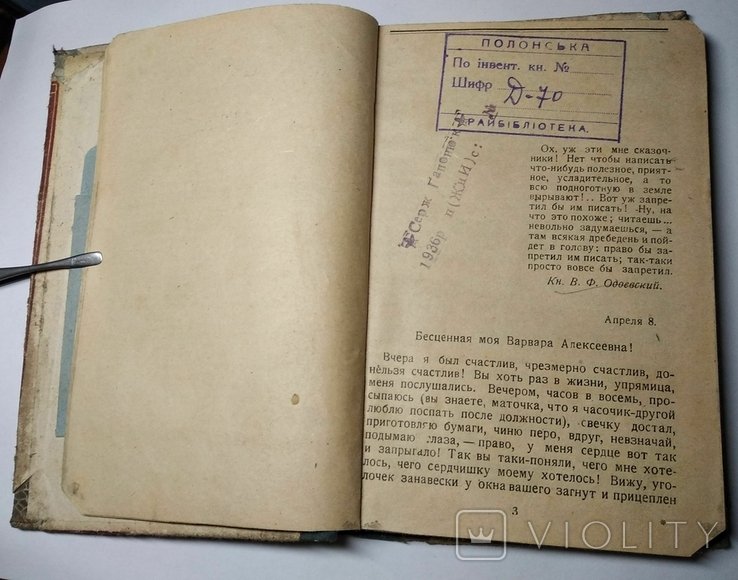 ПОЛОНСЬКА
По інвент. кн. №
Шифр Д-70
РАЙБІБЛІОТЕКА.
Серж
1936р
Ох, уж эти мне сказоч-
ники! Нет чтобы написать
что-нибудь полезное, прият-
ное, усладительное, а то
всю подноготную в земле
вырывают!.. Вот уж запре-
тил бы им писать! Ну, на
что это похоже; читаешь...
невольно задумаешься, — а
там всякая дребедень и пой-
дет в голову: право бы за-
претил им писать; так-таки
просто вовсе бы запретил.
Кн. В. Ф. Одоевский.
Апреля 8.
Бесценная моя Варвара Алексеевна!
Вчера я был счастлив, чрезмерно счастлив, до-
нельзя счастлив! Вы хоть раз в жизни, упрямица,
меня послушались. Вечером, часов в восемь, про-
сыпаюсь (вы знаете, маточка, что я часочик-другой
люблю поспать после должности), свечку достал,
приготовляю бумаги, чиню перо, вдруг, невзначай,
подымаю глаза, — право, у меня сердце вот так
и запрыгало! Так вы таки-поняли, чего мне хоте-
лось, чего сердчишку моему хотелось! Вижу, уго-
лочек занавески у окна вашего загнут и прицеплен
3
VIOLITY